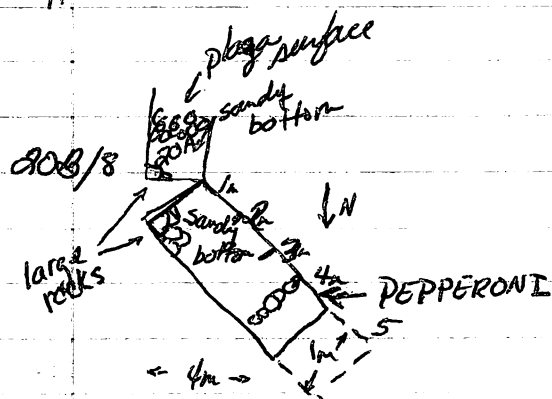 plaza surface
sandy bottom
20A
20B/8
1m
sandy bottom
2m
3m
N
large rocks
4m
PEPPERONI
5
1m
4m